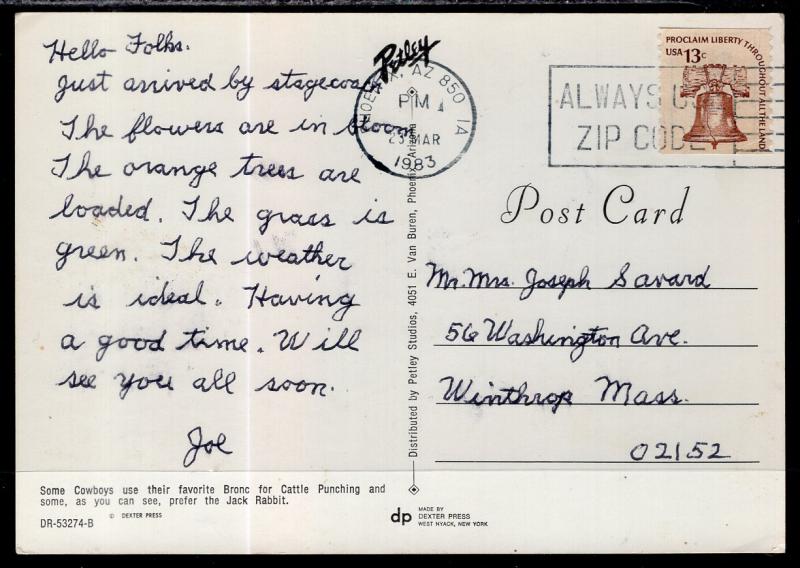 Hello Folks.
Just arrived by stagecoach
The flowers are in bloom
The orange trees are
loaded. The grass is
green. The weather
is ideal. Having
a good time. Will
see you all soon.
Joe
Some Cowboys use their favorite Bronc for Cattle Punching and
some, as you can see, prefer the Jack Rabbit.
© DEXTER PRESS
DR-53274-B
Petley
PHOENIX, AZ 850
PM
23 MAR
1983
1A
Distributed by Petley Studios, 4051 E. Van Buren, Phoenix, Arizona
dp
MADE BY
DEXTER PRESS
WEST NYACK, NEW YORK
ALWAYS USE
ZIP CODE
PROCLAIM LIBERTY THROUGHOUT ALL THE LAND
USA 13c
Post Card
Mr. Mrs. Joseph Savard
56 Washington Ave.
Winthrop Mass.
02152